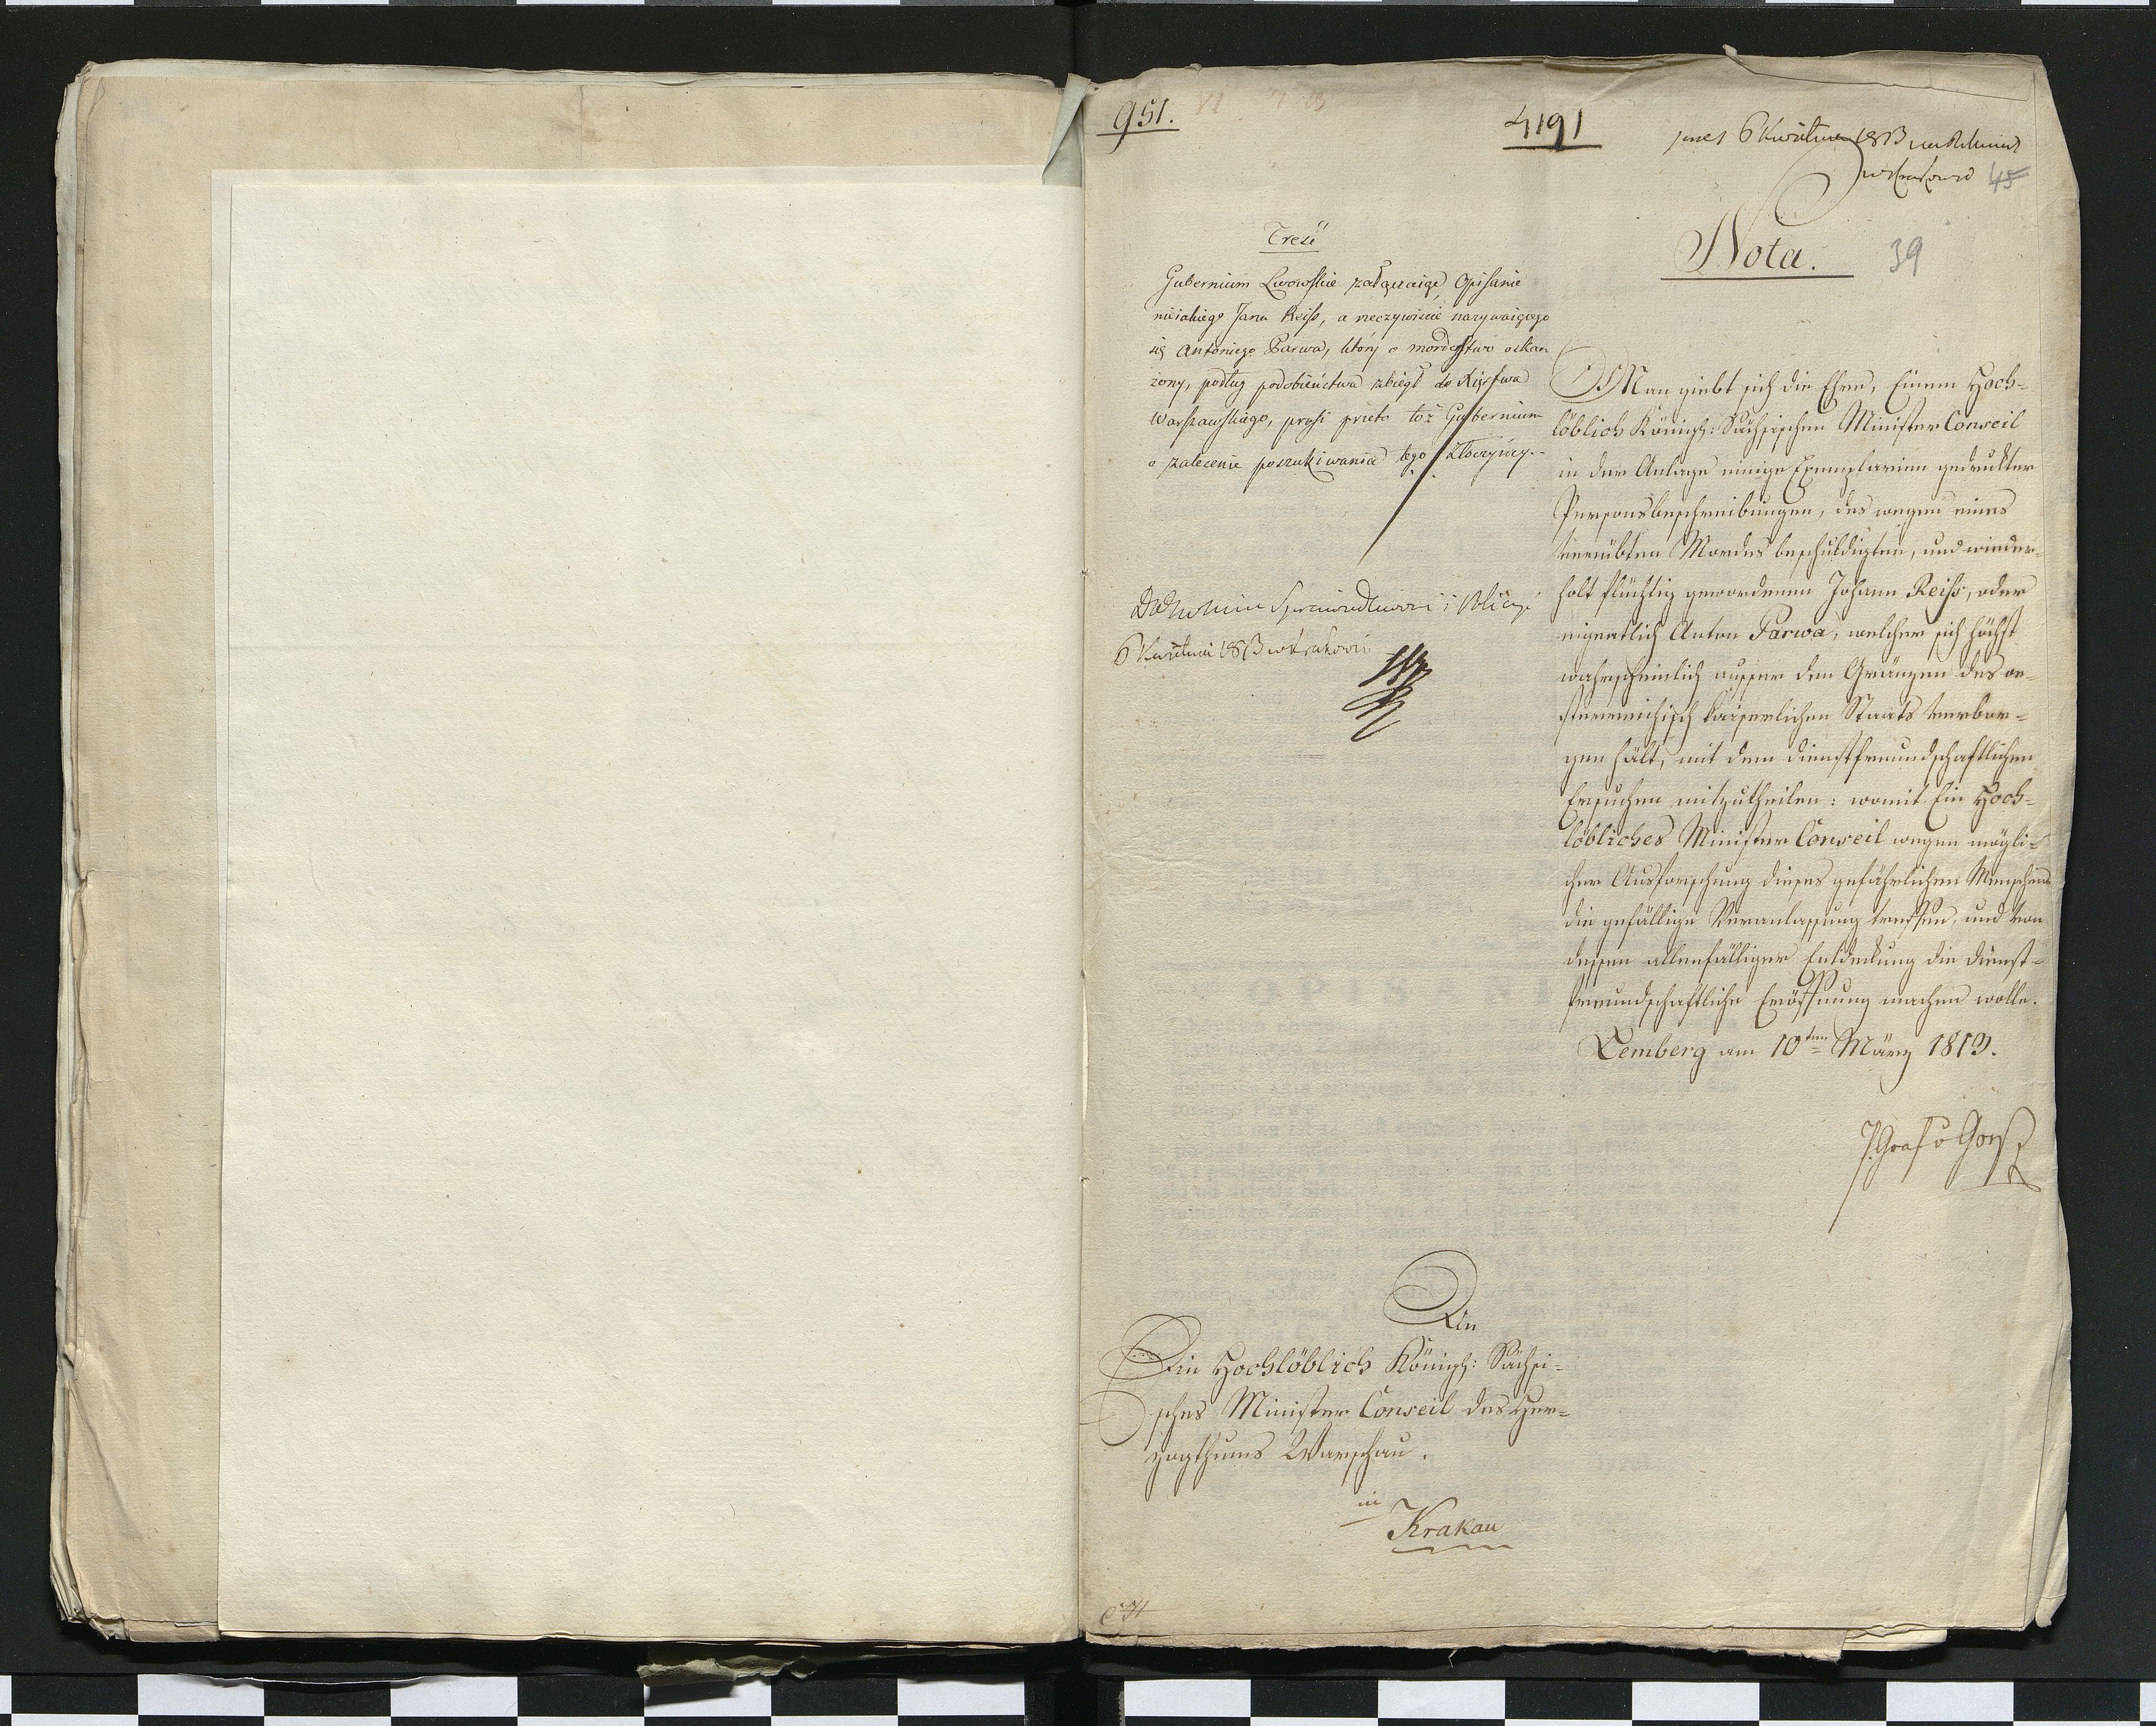 951.
4191
6 Kwietnia 1813
w Krakowie 45
Nota. 39
Treść
Gubernium Lwowskie załączaiąc Opisanie
nieiakiego Jana Reiss, a rzeczywiście nazywaiącego
się Antoniego Parwa, który o morderstwo oskar
żony, podług podobieństwa zbiegł do Xięstwa
Warszawskiego, prosi przeto toż Gubernium
o zalecenie poszukiwania tego Złoczyńcy.
Sprawiedliwości i Policyi
6 Kwietnia 1813 w Krakowie
Man giebt sich die Ehre, Einem Hoch-
löblich Königl: Sächsischen Minister Conseil
in der Anlage einige Exemplarien gedrukter
Personsbeschreibungen, des wegen eines
verübten Mordes beschuldigten, und wieder-
holt flüchtig gewordenen Johann Reiss, oder
eigentlich Anton Parwa, welcher sich höchst
wahrscheinlich ausser den Gränzen des oe-
sterreichisch kaiserlichen Staats verbor-
gen hält, mit dem dienstfreundschaftlichen
Ersuchen mitzutheilen: womit Ein Hoch-
löbliches Minister Conseil wegen mögli-
cher Ausforschung dieses gefährlichen Menschens
die gefällige Veranlassung treffen, und von
dessen allenfälliger Entdekung die dienst-
freundschaftliche Eröffnung machen wolle.
Lemberg am 10ten März 1813.
Graf v Goeß
An
Ein Hochlöblich Königl: Sächsi-
sches Minister Conseil des Her-
zogthums Warschau.
in
Krakau